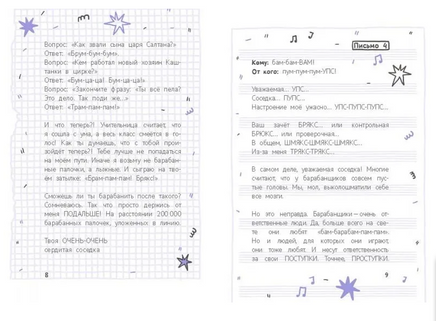 Вопрос: «Как звали сына царя Салтана?»
Ответ: «Брум-бум-бум».
Вопрос: «Кем работал новый хозяин Каш-
танки в цирке?»
Ответ: «Бум-ца-ца! Бум-ца-ца!»
Вопрос: «Закончите фразу: «Ты всё пела?
Это дело. Так поди же...»
Ответ: «Трам-пам-пам!»
И что теперь?! Учительница считает, что
я сошла с ума, а весь класс смеётся в го-
лос! Как ты думаешь, что с тобой прои-
зойдёт теперь?! Тебе лучше не попадаться
на моём пути. Иначе я возьму не барабан-
ные палочки, а лыжные. И сыграю на тво-
ём затылке: «Брам-пам-пам! Брякс!»
Сможешь ли ты барабанить после такого?
Сомневаюсь. Так что просто держись от
меня ПОДАЛЬШЕ! На расстоянии 200 000
барабанных палочек, уложенных в линию.
Твоя ОЧЕНЬ-ОЧЕНЬ
сердитая соседка
8
Письмо 4
Кому: бам-бам-ВАМ!
От кого: пум-пум-пум-УПС!
Уважаемая... УПС...
Соседка... ПУПС...
Настроение моё ужасно... УПС-ПУПС-ПУПС...
Ваш зачёт БРЯКС... или контрольная
БРЮКС... или проверочная...
В общем, ШМЯКС-ШМЯКС-ШМЯКС...
Из-за меня ТРЯКС-ТРЯКС...
В самом деле, уважаемая соседка! Многие
считают, что у барабанщиков совсем пус-
тые головы. Мы, мол, выколошматили себе
все мозги.
Но это неправда. Барабанщики — очень от-
ветственные люди. Да, больше всего на све-
те они любят «бам-барабам-пам-пам».
Но и людей, для которых они играют,
они тоже любят. И несут ответственность
за свои ПОСТУПКИ. Точнее, ПРОСТУПКИ.